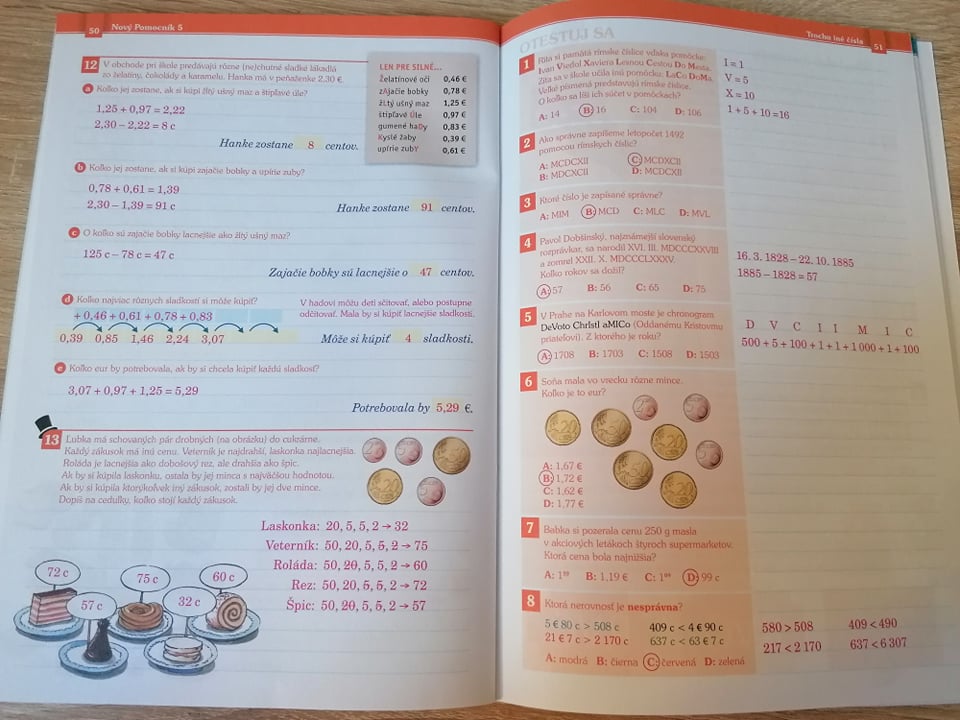 50 Nový Pomocník 5
12 V obchode pri škole predávajú rôzne (ne)chutné sladké lákadlá
zo želatíny, čokolády a karamelu. Hanka má v peňaženke 2,30 €.
a Koľko jej zostane, ak si kúpi žltý ušný maz a štipľavé úle?
1,25 + 0,97 = 2,22
2,30 – 2,22 = 8 c
Hanke zostane 8 centov.
LEN PRE SILNÉ...
želatínové oči 0,46 €
zAjačie bobky 0,78 €
žLtý ušný maz 1,25 €
štipľavé Úle 0,97 €
gumené haDy 0,83 €
Kyslé žaby 0,39 €
upírie zubY 0,61 €
b Koľko jej zostane, ak si kúpi zajačie bobky a upírie zuby?
0,78 + 0,61 = 1,39
2,30 – 1,39 = 91 c
Hanke zostane 91 centov.
c O koľko sú zajačie bobky lacnejšie ako žltý ušný maz?
125 c – 78 c = 47 c
Zajačie bobky sú lacnejšie o 47 centov.
d Koľko najviac rôznych sladkostí si môže kúpiť?
+ 0,46 + 0,61 + 0,78 + 0,83
0,39 0,85 1,46 2,24 3,07
V hadovi môžu deti sčitovať, alebo postupne
odčitovať. Mala by si kúpiť lacnejšie sladkosti.
Môže si kúpiť 4 sladkosti.
e Koľko eur by potrebovala, ak by si chcela kúpiť každú sladkosť?
3,07 + 0,97 + 1,25 = 5,29
Potrebovala by 5,29 €.
13 Ľubka má schovaných pár drobných (na obrázku) do cukrárne.
Každý zákusok má inú cenu. Veterník je najdrahší, laskonka najlacnejšia.
Roláda je lacnejšia ako dobošový rez, ale drahšia ako špic.
Ak by si kúpila laskonku, ostala by jej minca s najväčšou hodnotou.
Ak by si kúpila ktorýkoľvek iný zákusok, zostali by jej dve mince.
Dopíš na ceduľky, koľko stojí každý zákusok.
Laskonka: 20, 5, 5, 2 → 32
Veterník: 50, 20, 5, 5, 2 → 75
Roláda: 50, 20, 5, 5, 2 → 60
Rez: 50, 20, 5, 5, 2 → 72
Špic: 50, 20, 5, 5, 2 → 57
72 c
75 c
60 c
57 c
32 c
Trocha iné čísla 51
OTESTUJ SA
1 Rita si pamätá rímske číslice vďaka pomôcke:
Ivan Viedol Xaviera Lesnou Cestou Do Mesta.
Zita sa v škole učila inú pomôcku: LaCo DoMa.
Veľké písmená predstavujú rímske číslice.
O koľko sa líši ich súčet v pomôckach?
A: 14 B: 16 C: 104 D: 106
I = 1
V = 5
X = 10
1 + 5 + 10 = 16
2 Ako správne zapíšeme letopočet 1492
pomocou rímskych číslic?
A: MCDCXII C: MCDXCII
B: MDCXCII D: MCDCXII
3 Ktoré číslo je zapísané správne?
A: MIM B: MCD C: MLC D: MVL
4 Pavol Dobšinský, najznámejší slovenský
rozprávkar, sa narodil XVI. III. MDCCCXXVIII
a zomrel XXII. X. MDCCCLXXXV.
Koľko rokov sa dožil?
A: 57 B: 56 C: 65 D: 75
16. 3. 1828 – 22. 10. 1885
1885 – 1828 = 57
5 V Prahe na Karlovom moste je chronogram
DeVoto ChrIstI aMICo (Oddanému Kristovmu
priateľovi). Z ktorého je roku?
A: 1708 B: 1703 C: 1508 D: 1503
D V C I I M I C
500 + 5 + 100 + 1 + 1 + 1 000 + 1 + 100
6 Soňa mala vo vrecku rôzne mince.
Koľko je to eur?
A: 1,67 €
B: 1,72 €
C: 1,62 €
D: 1,77 €
7 Babka si pozerala cenu 250 g masla
v akciových letákoch štyroch supermarketov.
Ktorá cena bola najnižšia?
A: 1⁹⁹ B: 1,19 € C: 1⁰⁹ D: 99 c
8 Ktorá nerovnosť je nesprávna?
5 € 80 c > 508 c 409 c < 4 € 90 c
21 € 7 c > 2 170 c 637 c < 63 € 7 c
A: modrá B: čierna C: červená D: zelená
580 > 508 409 < 490
217 < 2 170 637 < 6 307